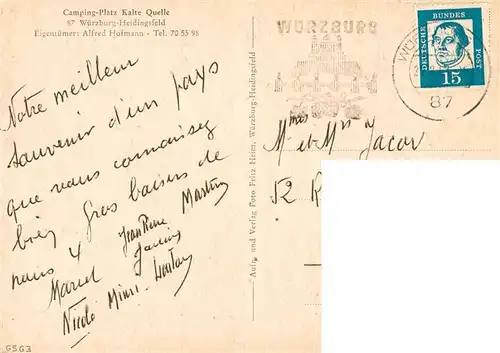 Camping-Platz Kalte Quelle
87 Würzburg-Heidingsfeld
Eigentümer: Alfred Hofmann - Tel. 70 55 98
Notre meilleur
souvenir d'un pays
que vous connaissez
bien Gros baisers de
nous 4
Jean Pierre Martin
Marcel
Nicole
Aufn. und Verlag Foto Fritz Heim, Würzburg-Heidingsfeld
WÜRZBURG
WÜ
87
DEUTSCHE BUNDESPOST
15
et Mr Jacov
52 R
G5G3